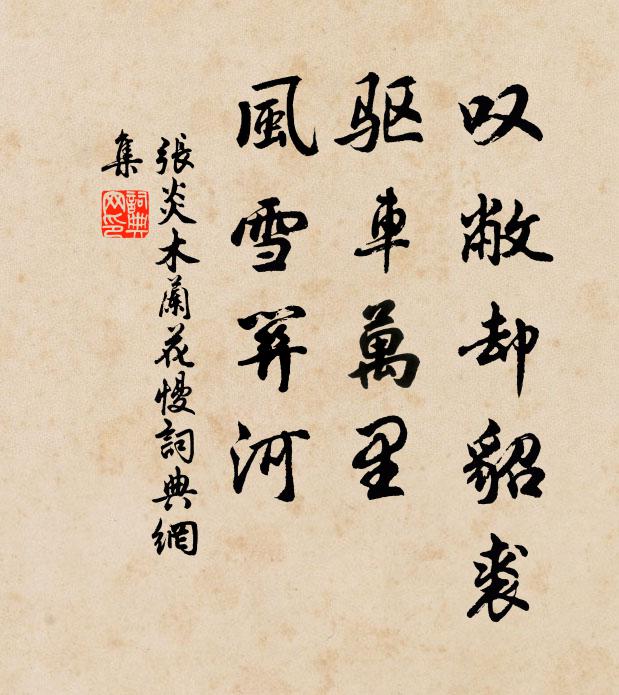 叹敝却貂裘
驱車萬里
風雪関河
張炎木蘭花慢詞典網
集
詞典
网印